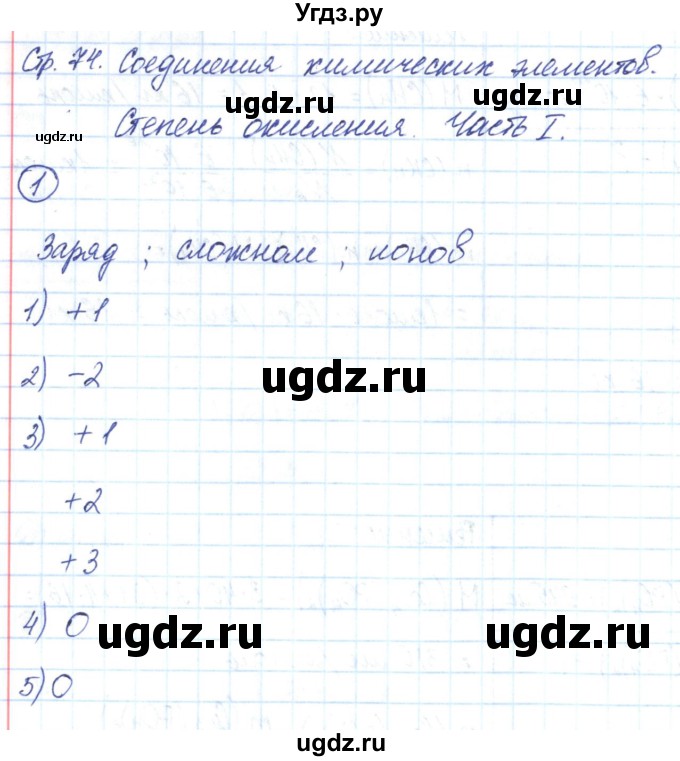 Угдз.ру
Стр. 74. Соединения химических элементов.
ugdz.ru
ugdz.ru
ugdz.ru
Степень окисления. Часть I.
1
Заряд ; сложном ; ионов
1) +1
ugdz.ru
2) -2
3) +1
+2
+3
4) 0
ugdz.ru
ugdz.ru
5) 0
ugdz.ru